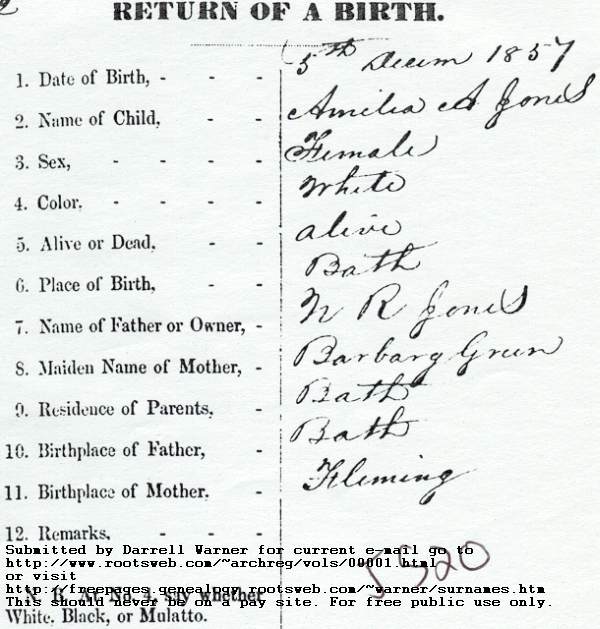 RETURN OF A BIRTH.
1. Date of Birth, - - - 5th Decem 1857
2. Name of Child, - - Amilia A Jones
3. Sex, - - - - Female
4. Color, - - - - White
5. Alive or Dead, - - alive
6. Place of Birth, - - Bath
7. Name of Father or Owner, - N R Jones
8. Maiden Name of Mother, - Barbary Green
9. Residence of Parents, - Bath
10. Birthplace of Father, - Bath
11. Birthplace of Mother, - Fleming
12. Remarks, - - - -
Submitted by Darrell Warner for current e-mail go to
http://www.rootsweb.com/~archreg/vols/00001.html
or visit
http://freepages.genealogy.rootsweb.com/~warner/surnames.htm
N. B. At No. 4, say whether
This should never be on a pay site. For free public use only.
White, Black, or Mulatto.